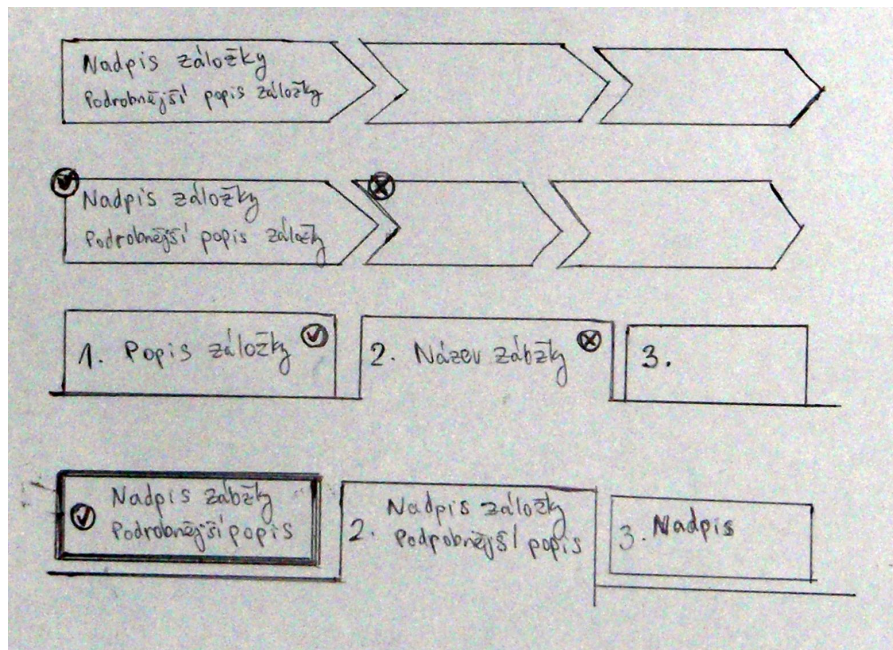 Nadpis záložky
Podrobnější popis záložky
Nadpis záložky
Podrobnější popis záložky
1. Popis záložky
2. Název záložky
3.
Nadpis záložky
Podrobnější popis
2. Nadpis záložky
Podpobnější popis
3. Nadpis